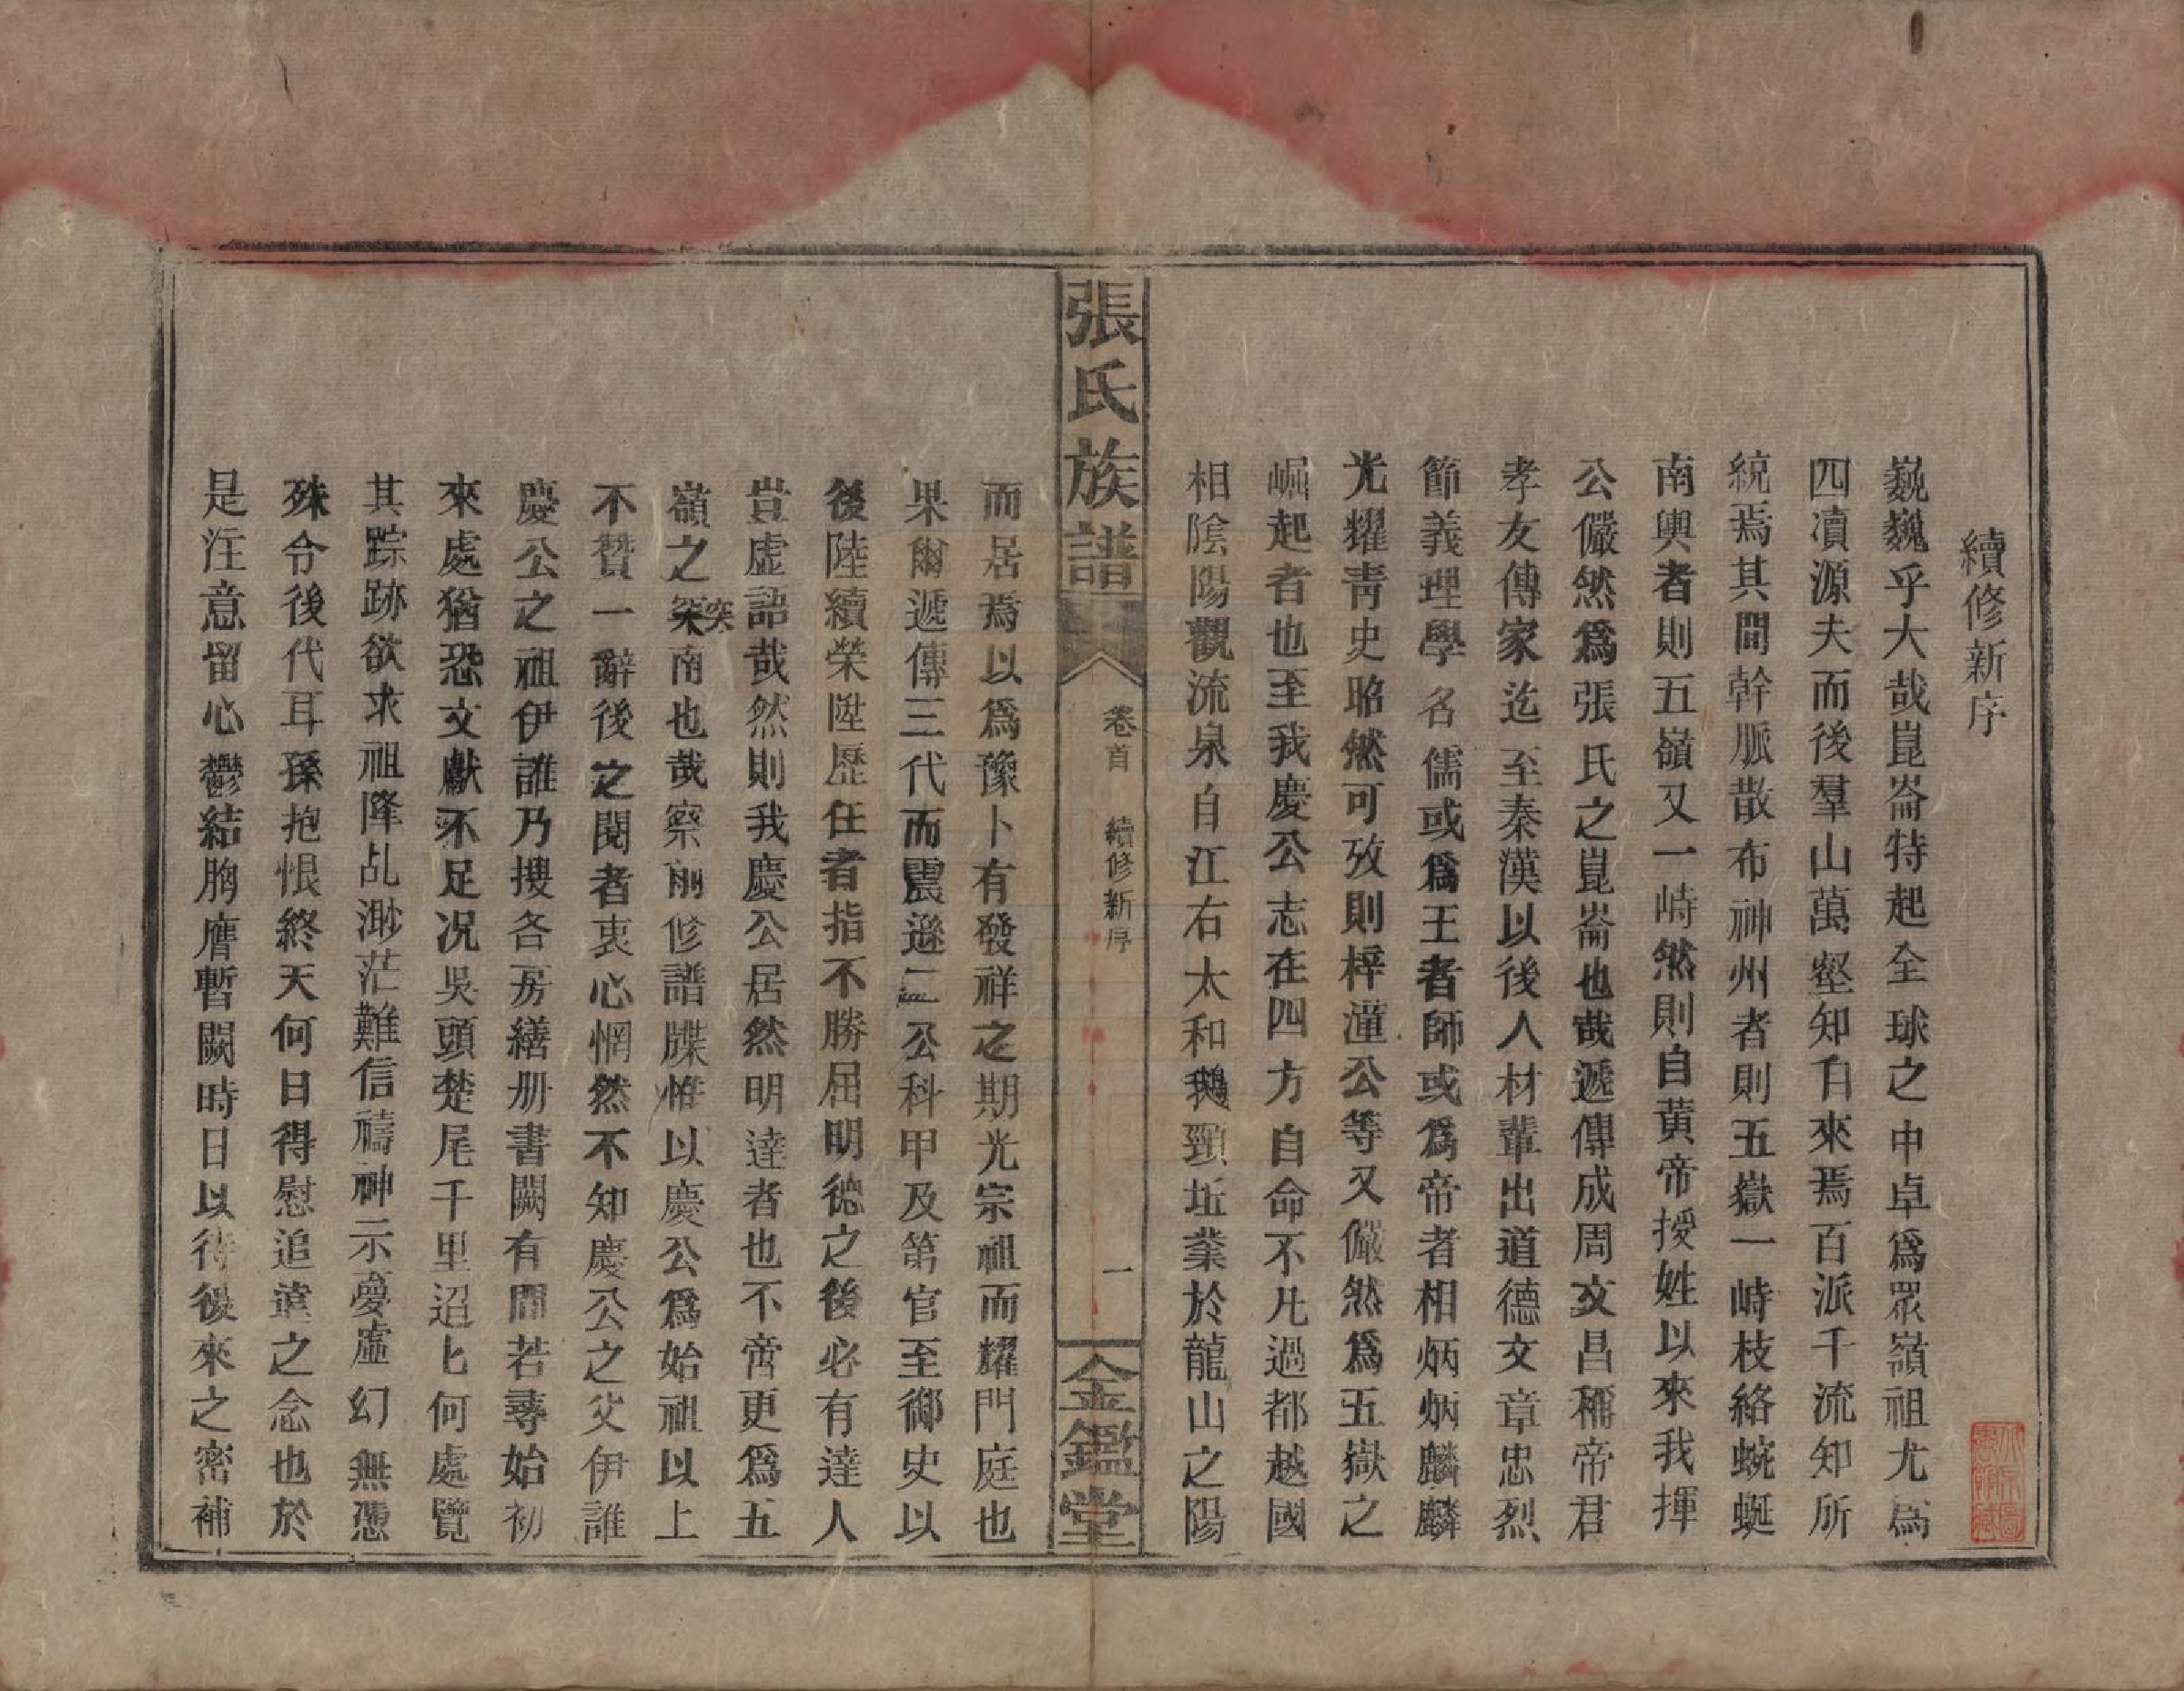 續修新序
巍巍乎大哉崑崙特起全球之中卓爲眾嶺祖尤爲
四凟源夫而後羣山萬壑知自來焉百派千流知所
統焉其間幹脈散布神州者則五嶽一峙枝絡蜿蜒
南輿者則五嶺又一峙然則自黃帝授姓以來我揮
公儼然爲張氏之崑崙也哉遞傳成周文昌稱帝君
孝友傳家迄至秦漢以後人材輩出道德文章忠烈
節義理學名儒或爲王者師或爲帝者相炳炳麟麟
光耀靑史昭然可攷則梓潼公等又儼然爲五嶽之
崛起者也至我慶公志在四方自命不凡過都越國
相陰陽觀流泉自江右太和鵝頸坵業於龍山之陽
張氏族譜
卷首
續修新序
一
金鑑堂
而居焉以爲豫卜有發祥之期光宗祖而耀門庭也
果爾遞傳三代而震遜二公科甲及第官至御史以
後陸續榮陞歷任者指不勝屈明德之後必有達人
豈虛語哉然則我慶公居然明達者也不啻更爲五
嶺之突南也哉察前修譜牒惟以慶公爲始祖以上
突
不贊一辭後之閱者衷心惘然不知慶公之父伊誰
慶公之祖伊誰乃搜各房繕册書闕有間若尋始初
來處猶恐文獻不足况吳頭楚尾千里迢匕何處覽
其踪跡欲求祖降乩渺茫難信禱神示夢虛幻無憑
殊令後代耳孫抱恨終天何日得慰追遠之念也於
是注意留心鬱結胸膺暫闕時日以待後來之密補